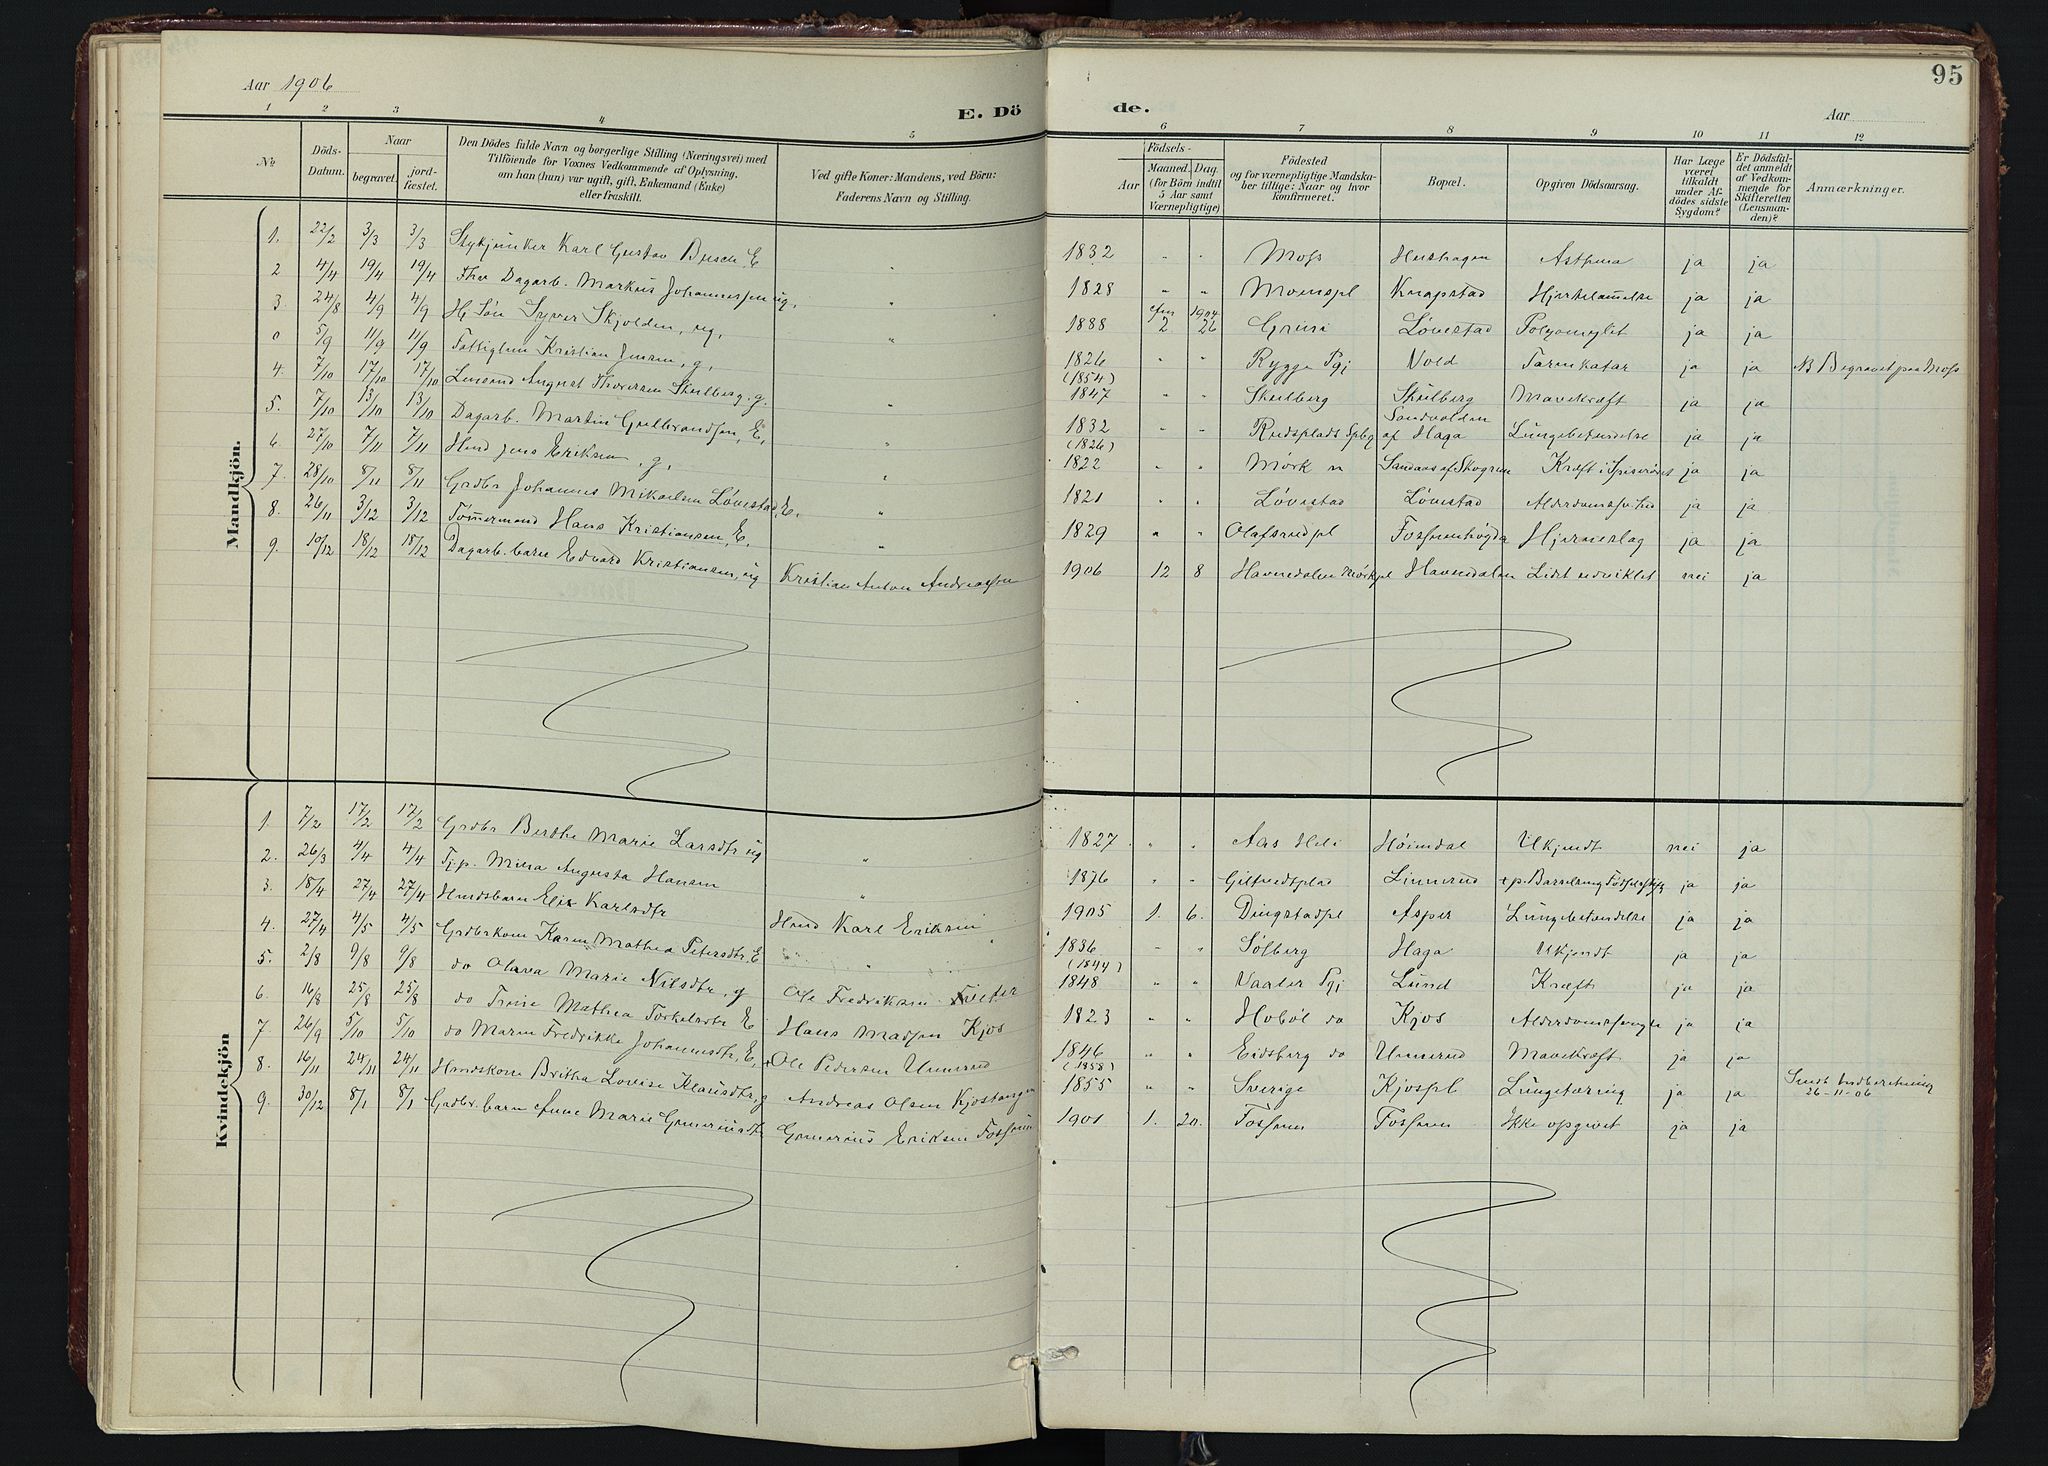 95
Aar 1906
E. Dö de.
Aar
1 2 3 4 5 6 7 8 9 10 11 12
No.
Döds-Datum.
Naar
begravet.
jord-fæstet.
Den Dödes fulde Navn og borgerlige Stilling (Næringsvei) med
Tilföiende for Voxnes Vedkommende af Oplysning,
om han (hun) var ugift, gift, Enkemand (Enke)
eller fraskilt.
Ved gifte Koner: Mandens, ved Börn:
Faderens Navn og Stilling.
Födsels-
Aar
Maaned. Dag.
(for Börn indtil
5 Aar samt
Værnepligtige)
Födested
og for værnepligtige Mandska-
ber tillige: Naar og hvor
konfirmeret.
Bopæl.
Opgiven Dödsaarsag.
Har Læge
været
tilkaldt
under Af-
dödes sidste
Sygdom?
Er Dödsfal-
det anmeldt
af Vedkom-
mende for
Skifteretten
(Lensman-
den)?
Anmærkninger.
Mandkjön.
1. 22/2 3/3 3/3 Stykjunker Karl Gustav Busch E. " 1832 " " Moss Asthma ja ja
2 4/4 19/4 19/4 Fhv Dagarb. Markus Johannessen ug. " 1828 " " Moenspl Knapstad Hjertelammelse ja ja
3. 24/8 4/9 4/9 Syver Skjolden, ug, " 1888 2 26 1904 Løvestad ja ja
0 5/9 11/9 11/9 Fattiglem Kristian Jensen, g, 1826 " " Rygge Pgj Vold Tarmkatar ja ja NB Begravet paa Moss
(1854)
4. 7/10 17/10 17/10 August Thoresen Skulberg. g. " 1847 " " Skulberg Skulberg Mavekræft ja ja
5. 7/10 13/10 13/10 Dagarb. Martin Gulbrandsen, E, " 1832 " " Sandvolden af Haga Lungebetændelse ja ja
(1826)
6. 27/10 7/11 7/11 Hmd Jens Eriksen, g, " 1822 " " Mörk Kræft i Spiserøret ja ja
7. 28/10 8/11 8/11 Grdbr Johannes Mikaelsen Løvestad, E. " 1821 " " Løvestad Løvestad ja ja
8. 26/11 3/12 3/12 Tømmermand Hans Kristiansen, E. " 1829 " " Olafsrudpl Hjerneslag ja ja
9. 10/12 18/12 18/12 Dagarb. barn Edvard Kristiansen, ug Kristian Anton Andreassen 1906 12 8 Havnedalen Mörkpl Havnedalen Lidt udviklet nei ja
Kvindekjön
1. 7/2 17/2 17/2 Grdbr Berthe Marie Larsdtr ug " 1827 " " Aas Høimdal Ukjendt nei ja
2. 26/3 4/4 4/4 Tj.p. Mina Augusta Hansen " 1876 " " Linnerud ja ja
3. 18/4 27/4 27/4 Hmdsbarn Karlsdtr Hmd Karl Eriksen 1905 1. 6. Dingstadpl Asper Lungebetændelse ja ja
4. 27/4 4/5 4/5 Grdbrkone Karen Mathea Petersdtr. E " 1836 " " Solberg Haga Ukjendt ja ja
(1844)
5. 2/8 9/8 9/8 do Olava Marie Nilsdtr, g Ole Fredriksen Tveter 1848 " " Vaaler Pgj Lund Kræft ja ja
6. 16/8 25/8 25/8 do Trine Mathea Torkelsdtr E Hans Madsen Kjos 1823 " " Hobøl do Kjos ja ja
7. 26/9 5/10 5/10 do Maren Fredrikke Johannesdtr, E, Ole Pedersen Unnerud 1846 " " Eidsberg do Unnerud Mavekræft ja ja
(1858)
8. 16/11 24/11 24/11 Hmdskone Britha Lovise Klausdtr, g Andreas Olsen Kjostangen 1855 " " Sverige Kjospl Lungetæring ja ja Sendt Indberetning
26-11-06
9. 30/12 8/1 8/1 Grdbr. barn Anne Marie Gunerusdtr Gunerius Eriksen Fossum 1901 1. 20. Fossum Fossum Ikke opgivet ja ja